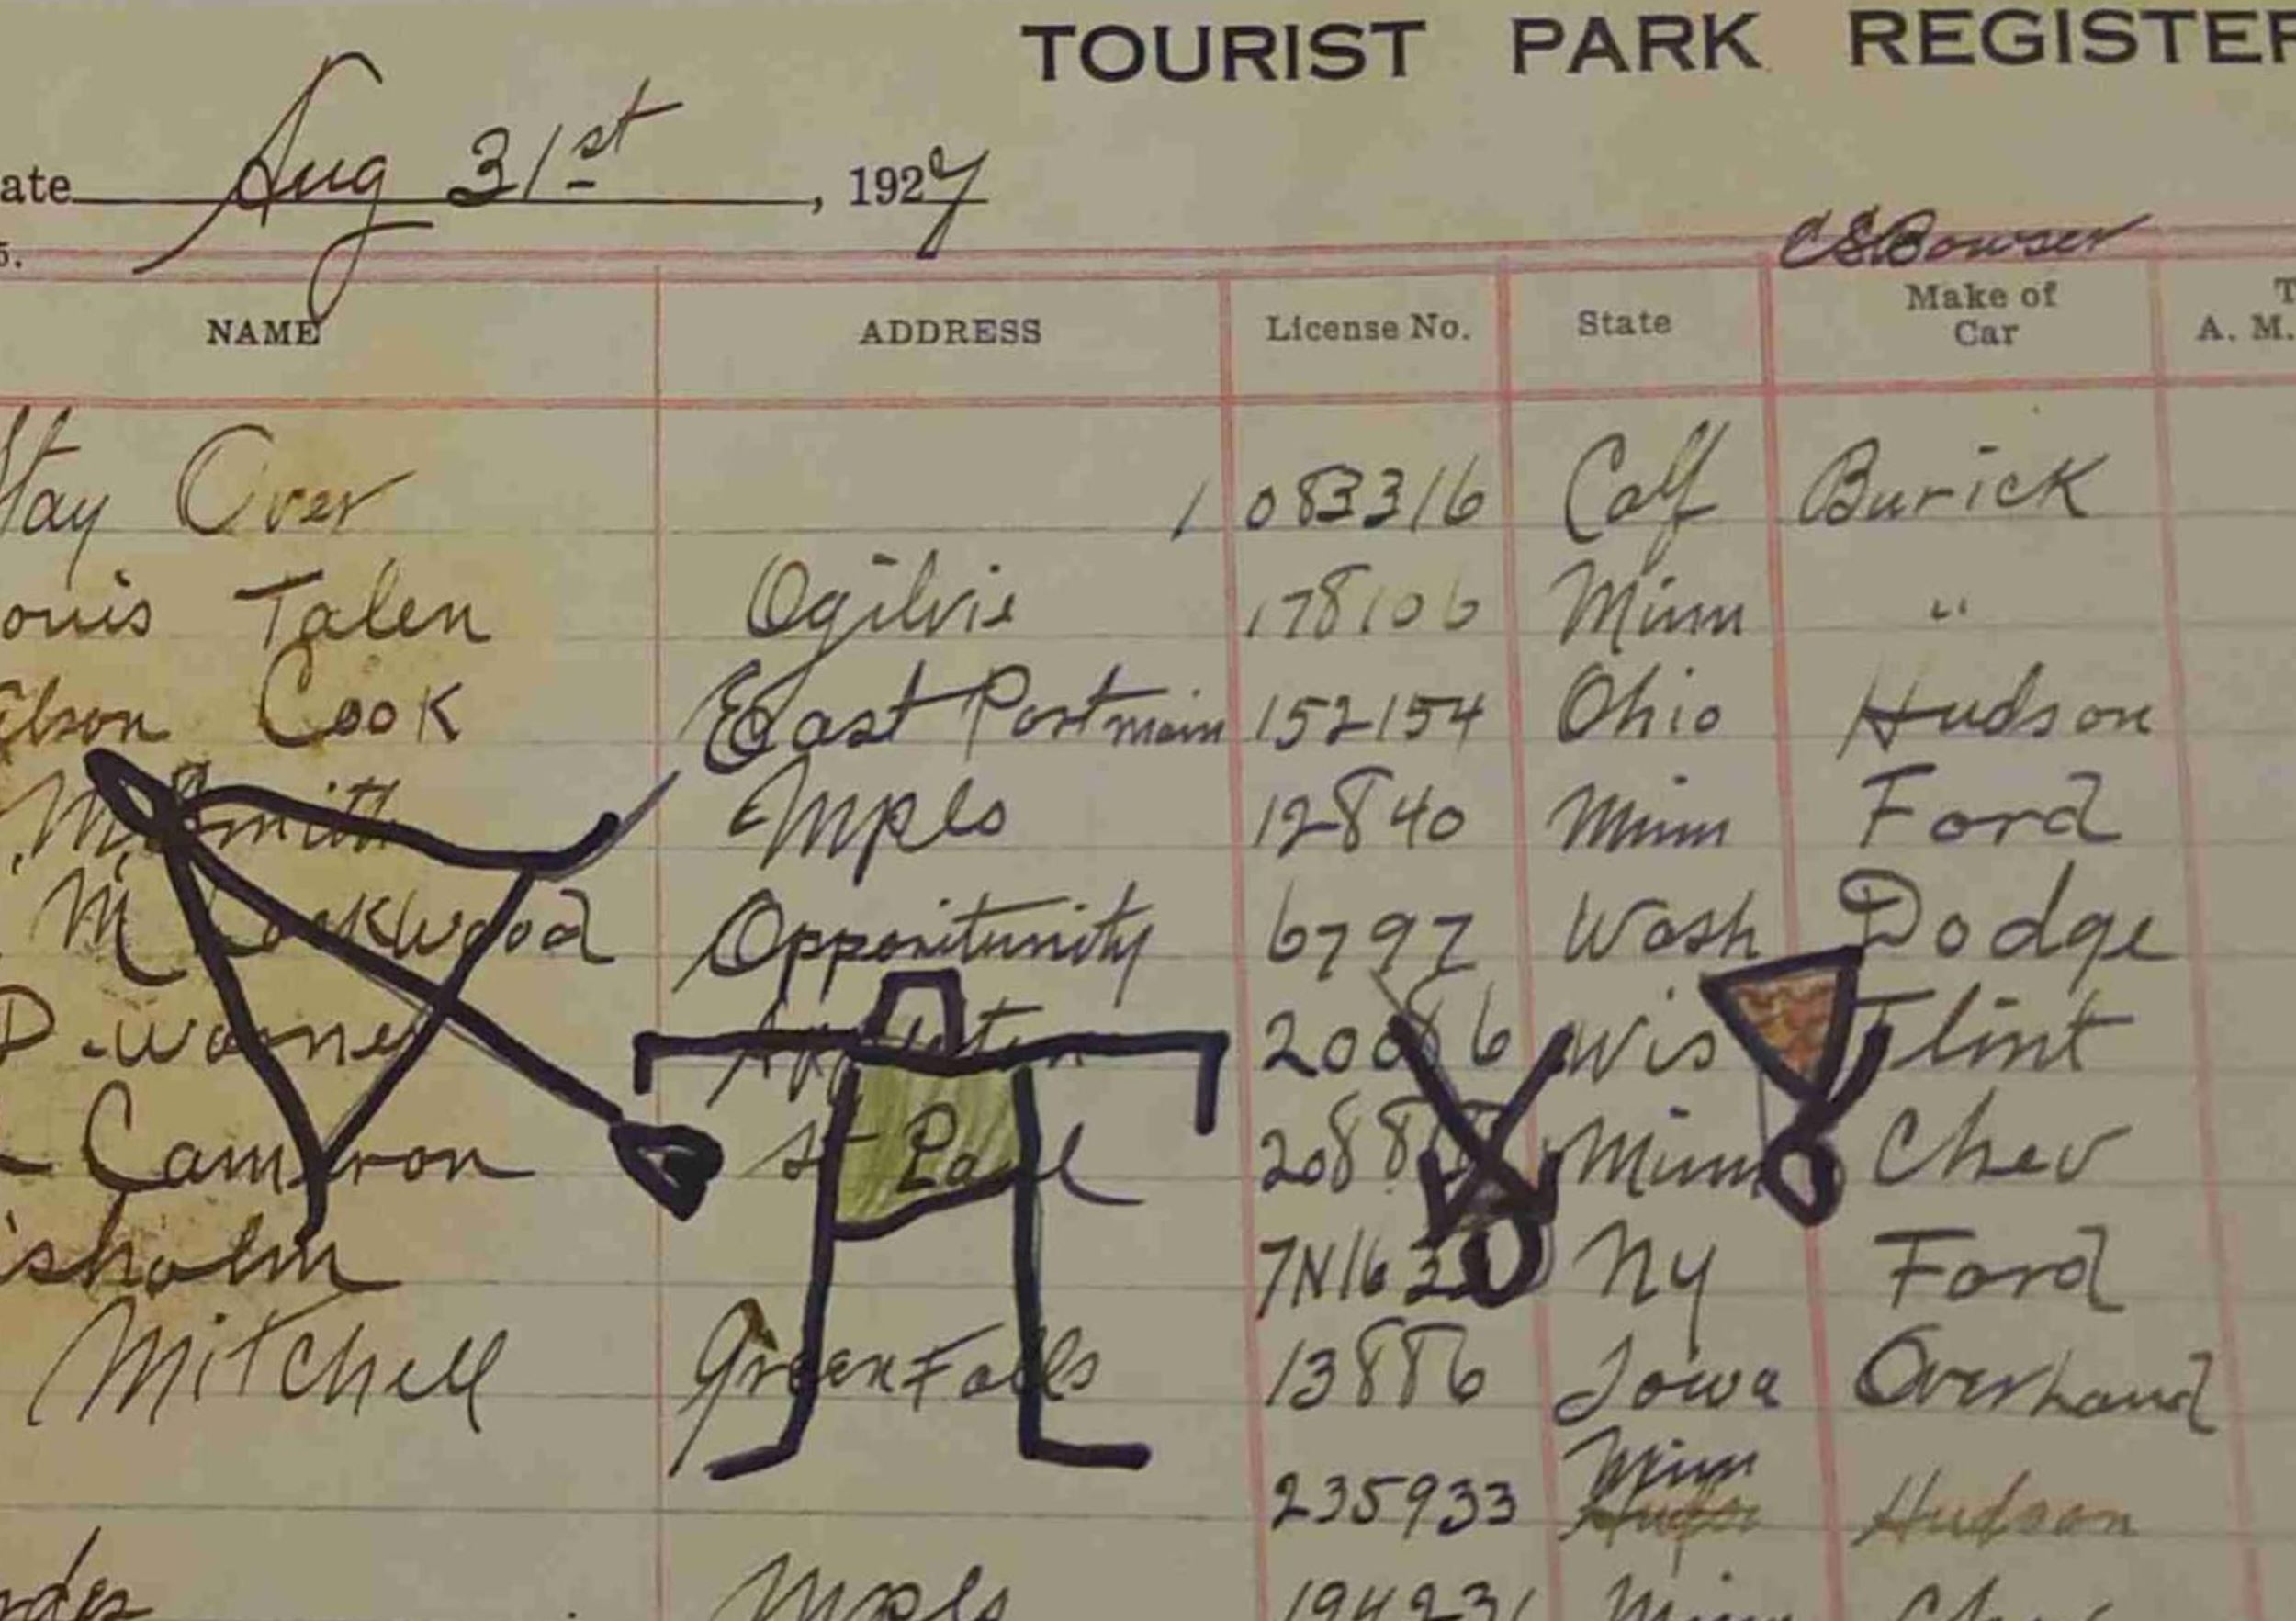 TOURIST PARK REGISTER
ate Aug 31st, 1927
5.
CSBowser
NAME ADDRESS License No. State Make of Car A. M.
Stay Over 1 083316 Calf Burick
ouis Talen Ogilvie 178106 Minn "
Cook East Port main 152154 Ohio Hudson
M Smith Mpls 12840 Minn Ford
M Lockwood Opportunity 6797 Wash Dodge
D. Warner Appleton Wis Flint
Cameron St Paul Minn Chev
isholm NY Ford
Mitchell Green Falls 13886 Iowa Overhand
235933 Minn Hudson
Mpls 194231 Minn Chev